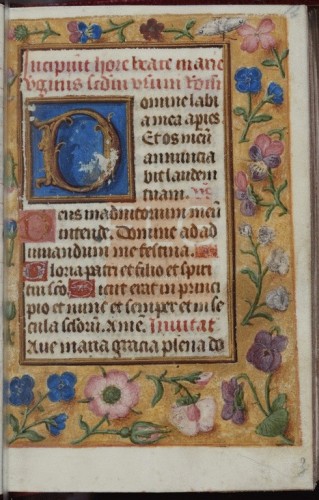 Incipiunt hore beate marie
virginis scdm vsum Rom
Domine labi
a mea apies
Et os meu
annuncia
bit laudem
tuam. Vs
Deus in adiutorium meu
intende. Domine ad ad
iuuandum me festina.
Gloria patri et filio et spiri
tui sco. Sicut erat in princi
pio et nunc et semper et in se
cula seclorum. Ame. Inuitat.
Aue maria gracia plena do